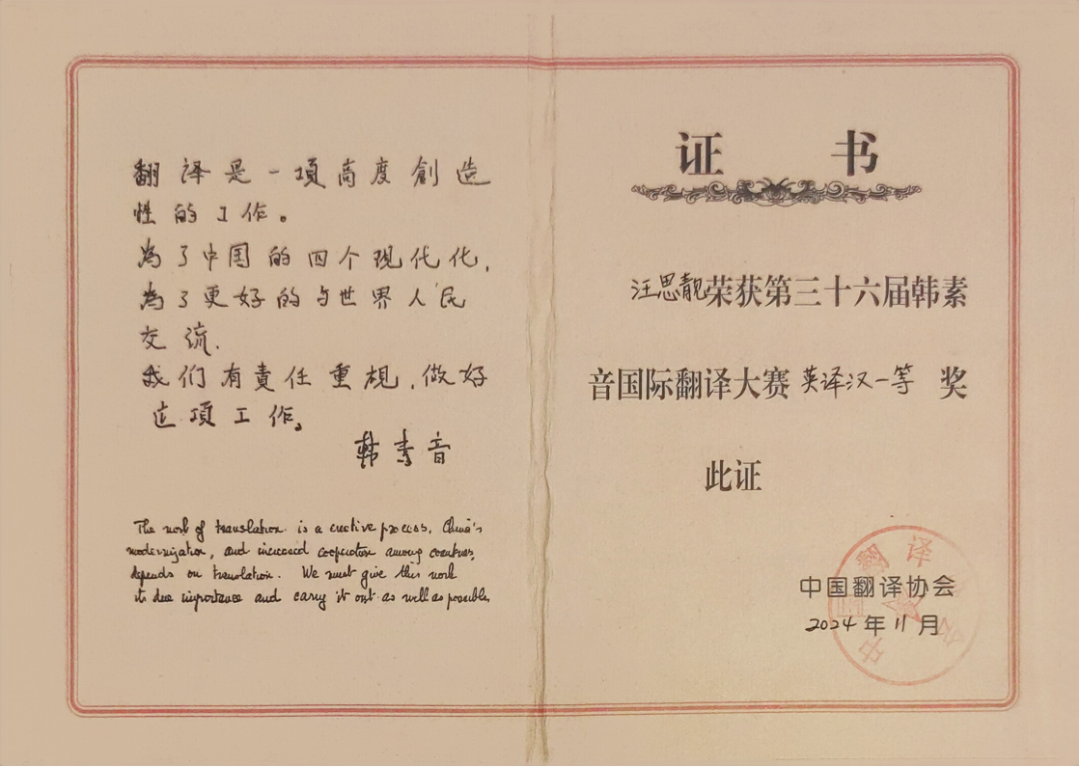 翻译是一項高度創造
性的工作。
為了中国的四个现代化,
為了更好的与世界人民
交流.
我们有責任重视,做好
这項工作。
韩素音
The work of translation is a creative process. China's
modernization, and increased cooperation among countries,
depends on translation. We must give this work
its due importance and carry it out as well as possible.
证 书
汪思靓荣获第三十六届韩素
音国际翻译大赛英译汉一等 奖
此证
中国翻译协会
2024年11月